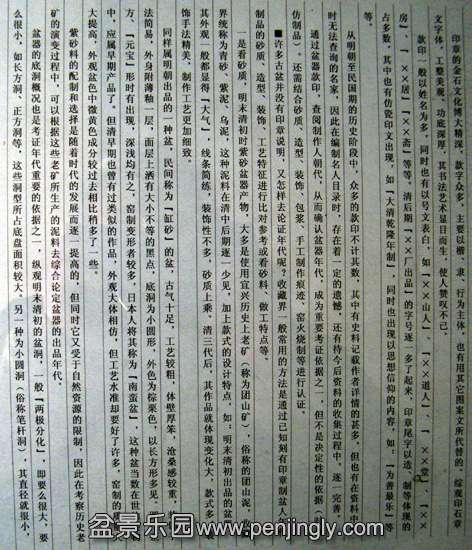 印章的金石文化博大精深，款字众多，主要以楷、隶、行为主体，也有用其它图案文所代替的。综观印石章
文字体，工整美观，功底深厚，其书法艺术显目而生，使人赞叹不已。
款印一般以姓名为多，同时也有以号文表白，如“××山人”、“××道人”、“××堂”、“××
房”、“××居”、“××斋”等等。清后期“××厂出品”的字号逐一多了起来，印章尾字以造、制等体现的
占多数，其中也有仿瓷印文出现，如“大清乾隆年制”，同时也出现以思想信仰的内容，如：“为善最乐”等
等。
从明朝至民国期的历史阶段中，众多的款印不计其数，其中有史料记载作者详情的甚多，但也有在资料中
时无法查询的名家，因此在编制名人目录时，存在着一定的遗憾，还有待今后资料的收集过程中，逐一完善，
通过盆器款印，查阅制作人朝代，从而确认盆器年代，成为重要考证依据之一，但不是决定性的依据（
仿制品），还需结合砂质、造型、装饰、包浆、手工制作痕迹、窑火烧制等进行认证。
■许多古盆并没有印章说明，又怎样去论证年代呢？收藏界一般常用的方法是通过已知刻有印章制盆人
制品的砂质、造型、装饰、工艺特征进行比对参考或看砂料、做工特点等。
一是看砂质，明末清初时紫砂盆器产物，大多是使用宜兴历史上老矿（称为团山矿），俗称的团山泥，
界统称为青砂、紫泥、乌泥，这种泥料在清中后期逐一少见，加上款式的设计特点，如：明末清初出品的盆
其外观一般都显得“大气”，线条简练，装饰性不多，砂质上乘，清三代后，其作品就体现变化大，款式多
饰手法精美，制作工艺更加细致。
同样属明朝出品的一种盆，民间称为“缸砂”的盆，古气十足，工艺较粗，体壁厚笨，沧桑感较重，
法简易，外身附薄釉一层，面层上洒有大小不等的黑点，底洞为小圆形，外色为棕栗色，以长方形多见，
方、“元宝”形时有出现，深浅均有之，窑制变形者较多，日本人将其称为“南蛮盆”，这种盆当数在世
中，应属早期产品了。但清早期也曾有过类似的作品，外观大体相仿，但工艺水准却要好了许多，窑制的
大提高，外观盆色中微黄色成分较过去相比稍多了一些。
紫砂料的配制和选择是随着时代的发展而逐一提高的，但同时它又受于自然资源的限制，因此在考察历史老
矿的演变过程中，可以根据这些老矿所生产的泥料去综合论定盆器的出品年代。
盆器的底洞概况也是考证年代重要的依据之一，纵观明末清初的盆洞，一般“两极分化”，即要么很大，要
么很小，如长方洞、正方洞等，这些洞型所占底盘面积较大。另一种为小圆洞（俗称笔杆洞），其直径就很小，
盆景乐园 www.penjingly.com